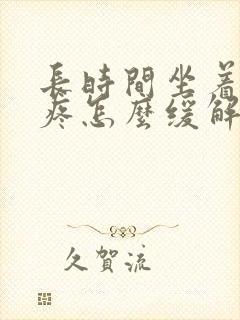 長時間坐着
疼怎麼緩解
久賀流